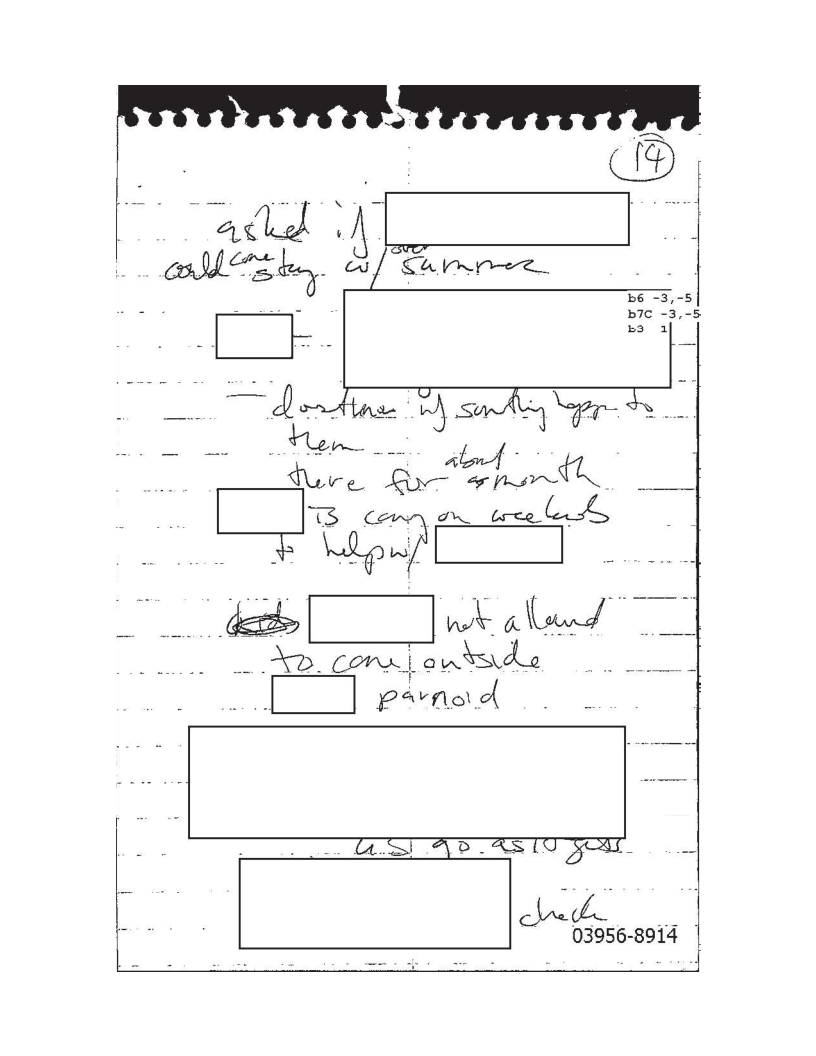 14
asked if
could come stay w/ over summer
b6 -3,-5
b7C -3,-5
b3 1
if somthing happn to
them
there for about a month
is comg on weekends
to help w/
not allowed
to come outside
parnoid
as
check
03956-8914